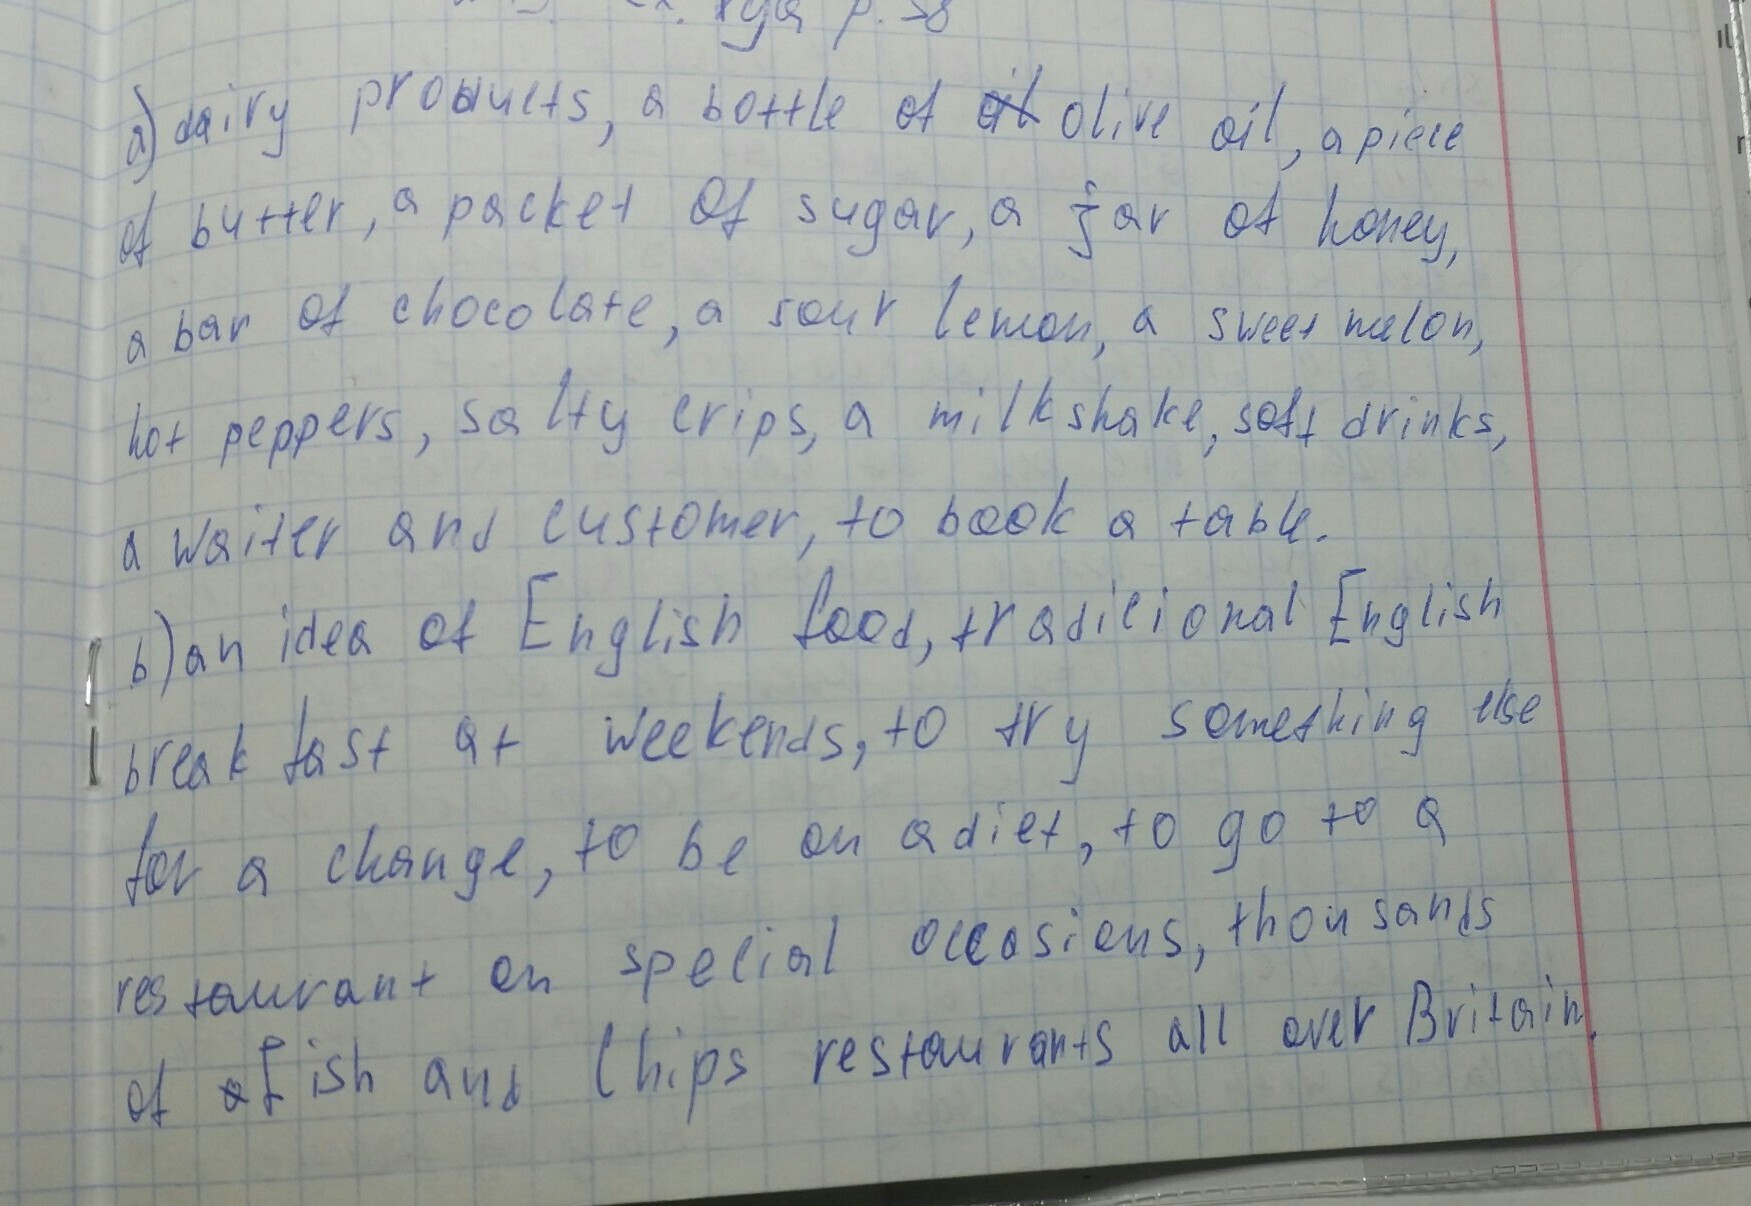 p. 58
a) dairy products, a bottle of olive oil, a piece
of butter, a packet of sugar, a jar of honey,
a bar of chocolate, a sour lemon, a sweet melon,
hot peppers, salty crips, a milkshake, soft drinks,
a waiter and customer, to book a table.
b) an idea of English food, tradicional English
breakfast at weekends, to try something else
for a change, to be on a diet, to go to a
restaurant on special occasions, thousands
of Fish and Chips restaurants all over Britain.